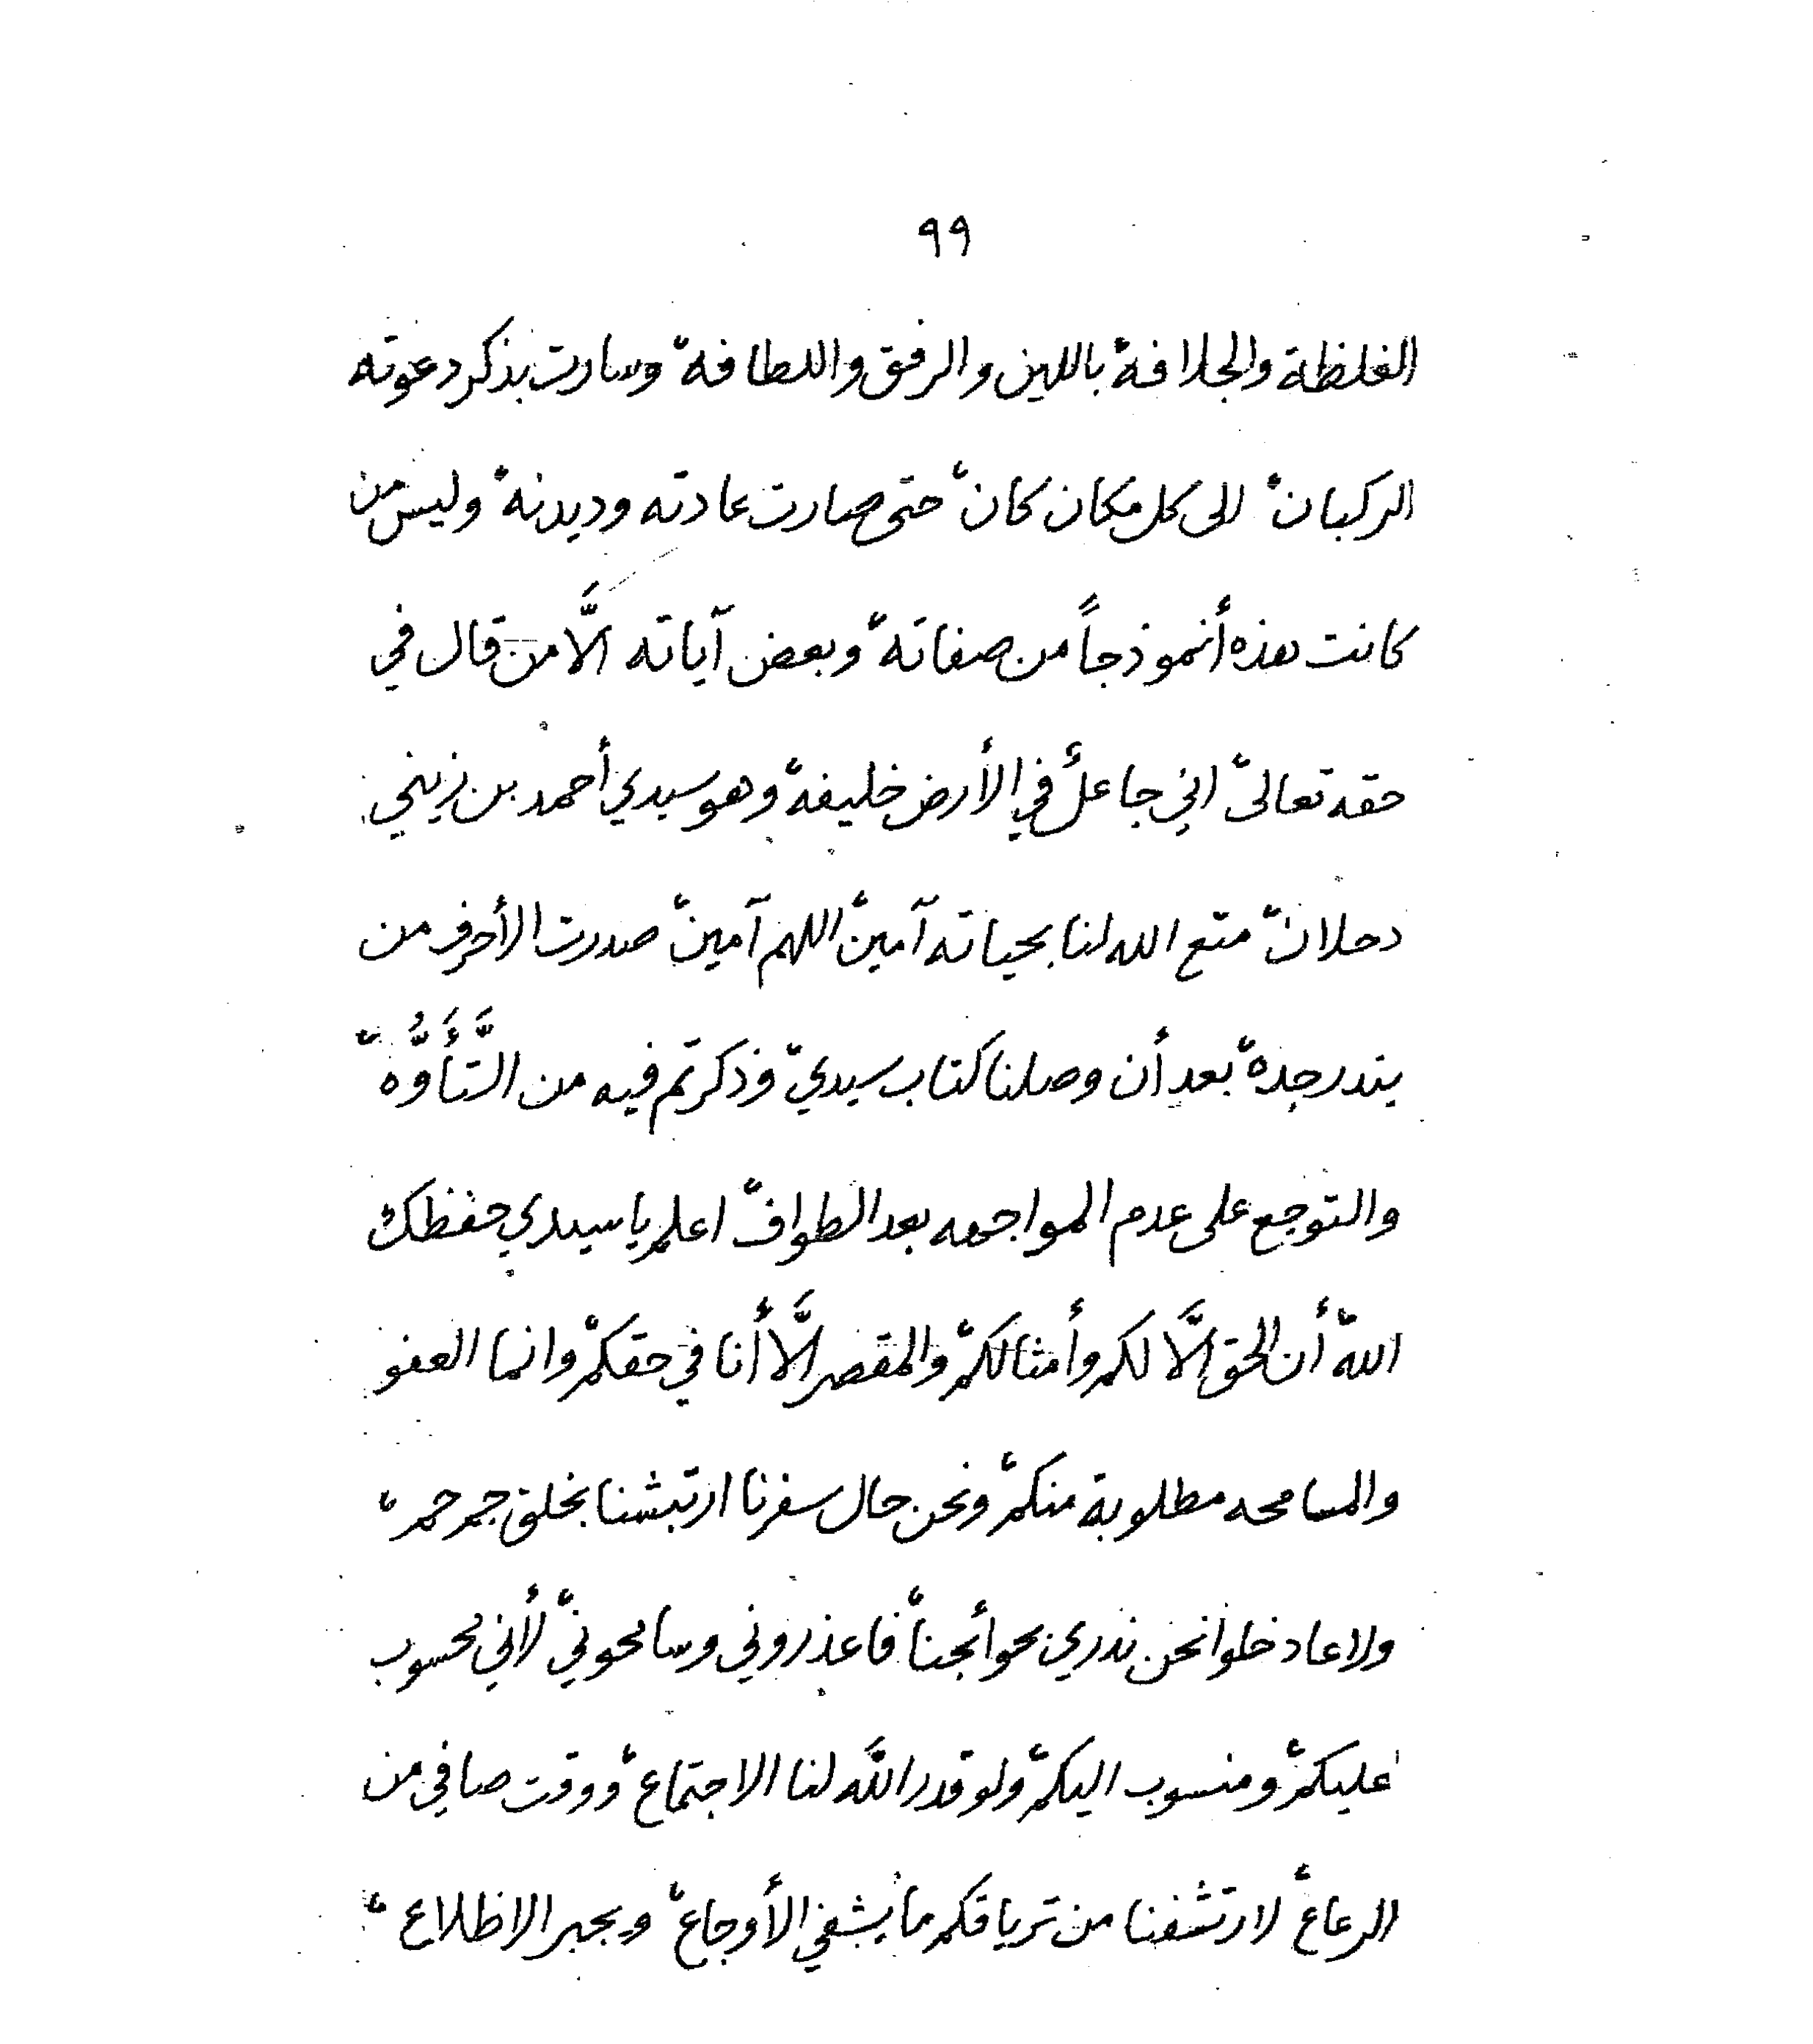 ٩٩
الغلظة والجلافة، باللين والرفق واللطافة، وسارت بذكر دعوته
الركبان، الى كل مكان كان، حتى صارت عادته وديدنه، وليس من
كانت هذه أنموذجاً من صفاته، وبعض آياته الَّا من قال في
حقه تعالى، اني جاعل في الأرض خليفة، وهو سيدي أحمد بن زيني
دحلان، متع الله لنا بحياته آمين، اللهم آمين، صدرت الأحرف من
بندر جدة، بعد أن وصلنا كتاب سيدي، وذكرتم فيه من التَّأَوُّه،
والتوجع على عدم المواجهه بعد الطواف، اعلم يا سيدي حفظك
الله، أن الحق الَّا لكم وأمثالكم، والمقصر الَّا أنا في حقكم، وانما العفو
والمسامحه مطلوبة منكم، ونحن حال سفرنا ارتبشنا بخلق جم جم،
ولا عاد خلوا نحن ندري بحوائجنا، فاعذروني وسامحوني، لأني محسوب
عليكم، ومنسوب اليكم، ولو قدر الله لنا الاجتماع، ووقت صافي من
الرعاع، لارتشفنا من ترياقكم ما يشفي الأوجاع، ويجبر الاظلاع،